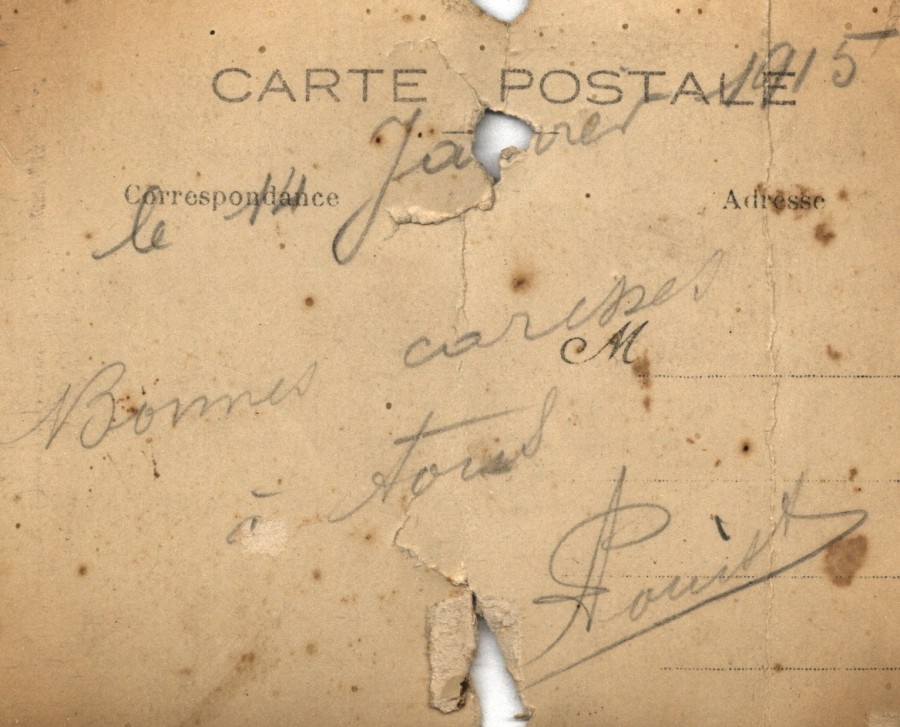 CARTE POSTALE
Correspondance
Adresse
le 14 Janvier 1915
Bonnes caresses
M
à tous